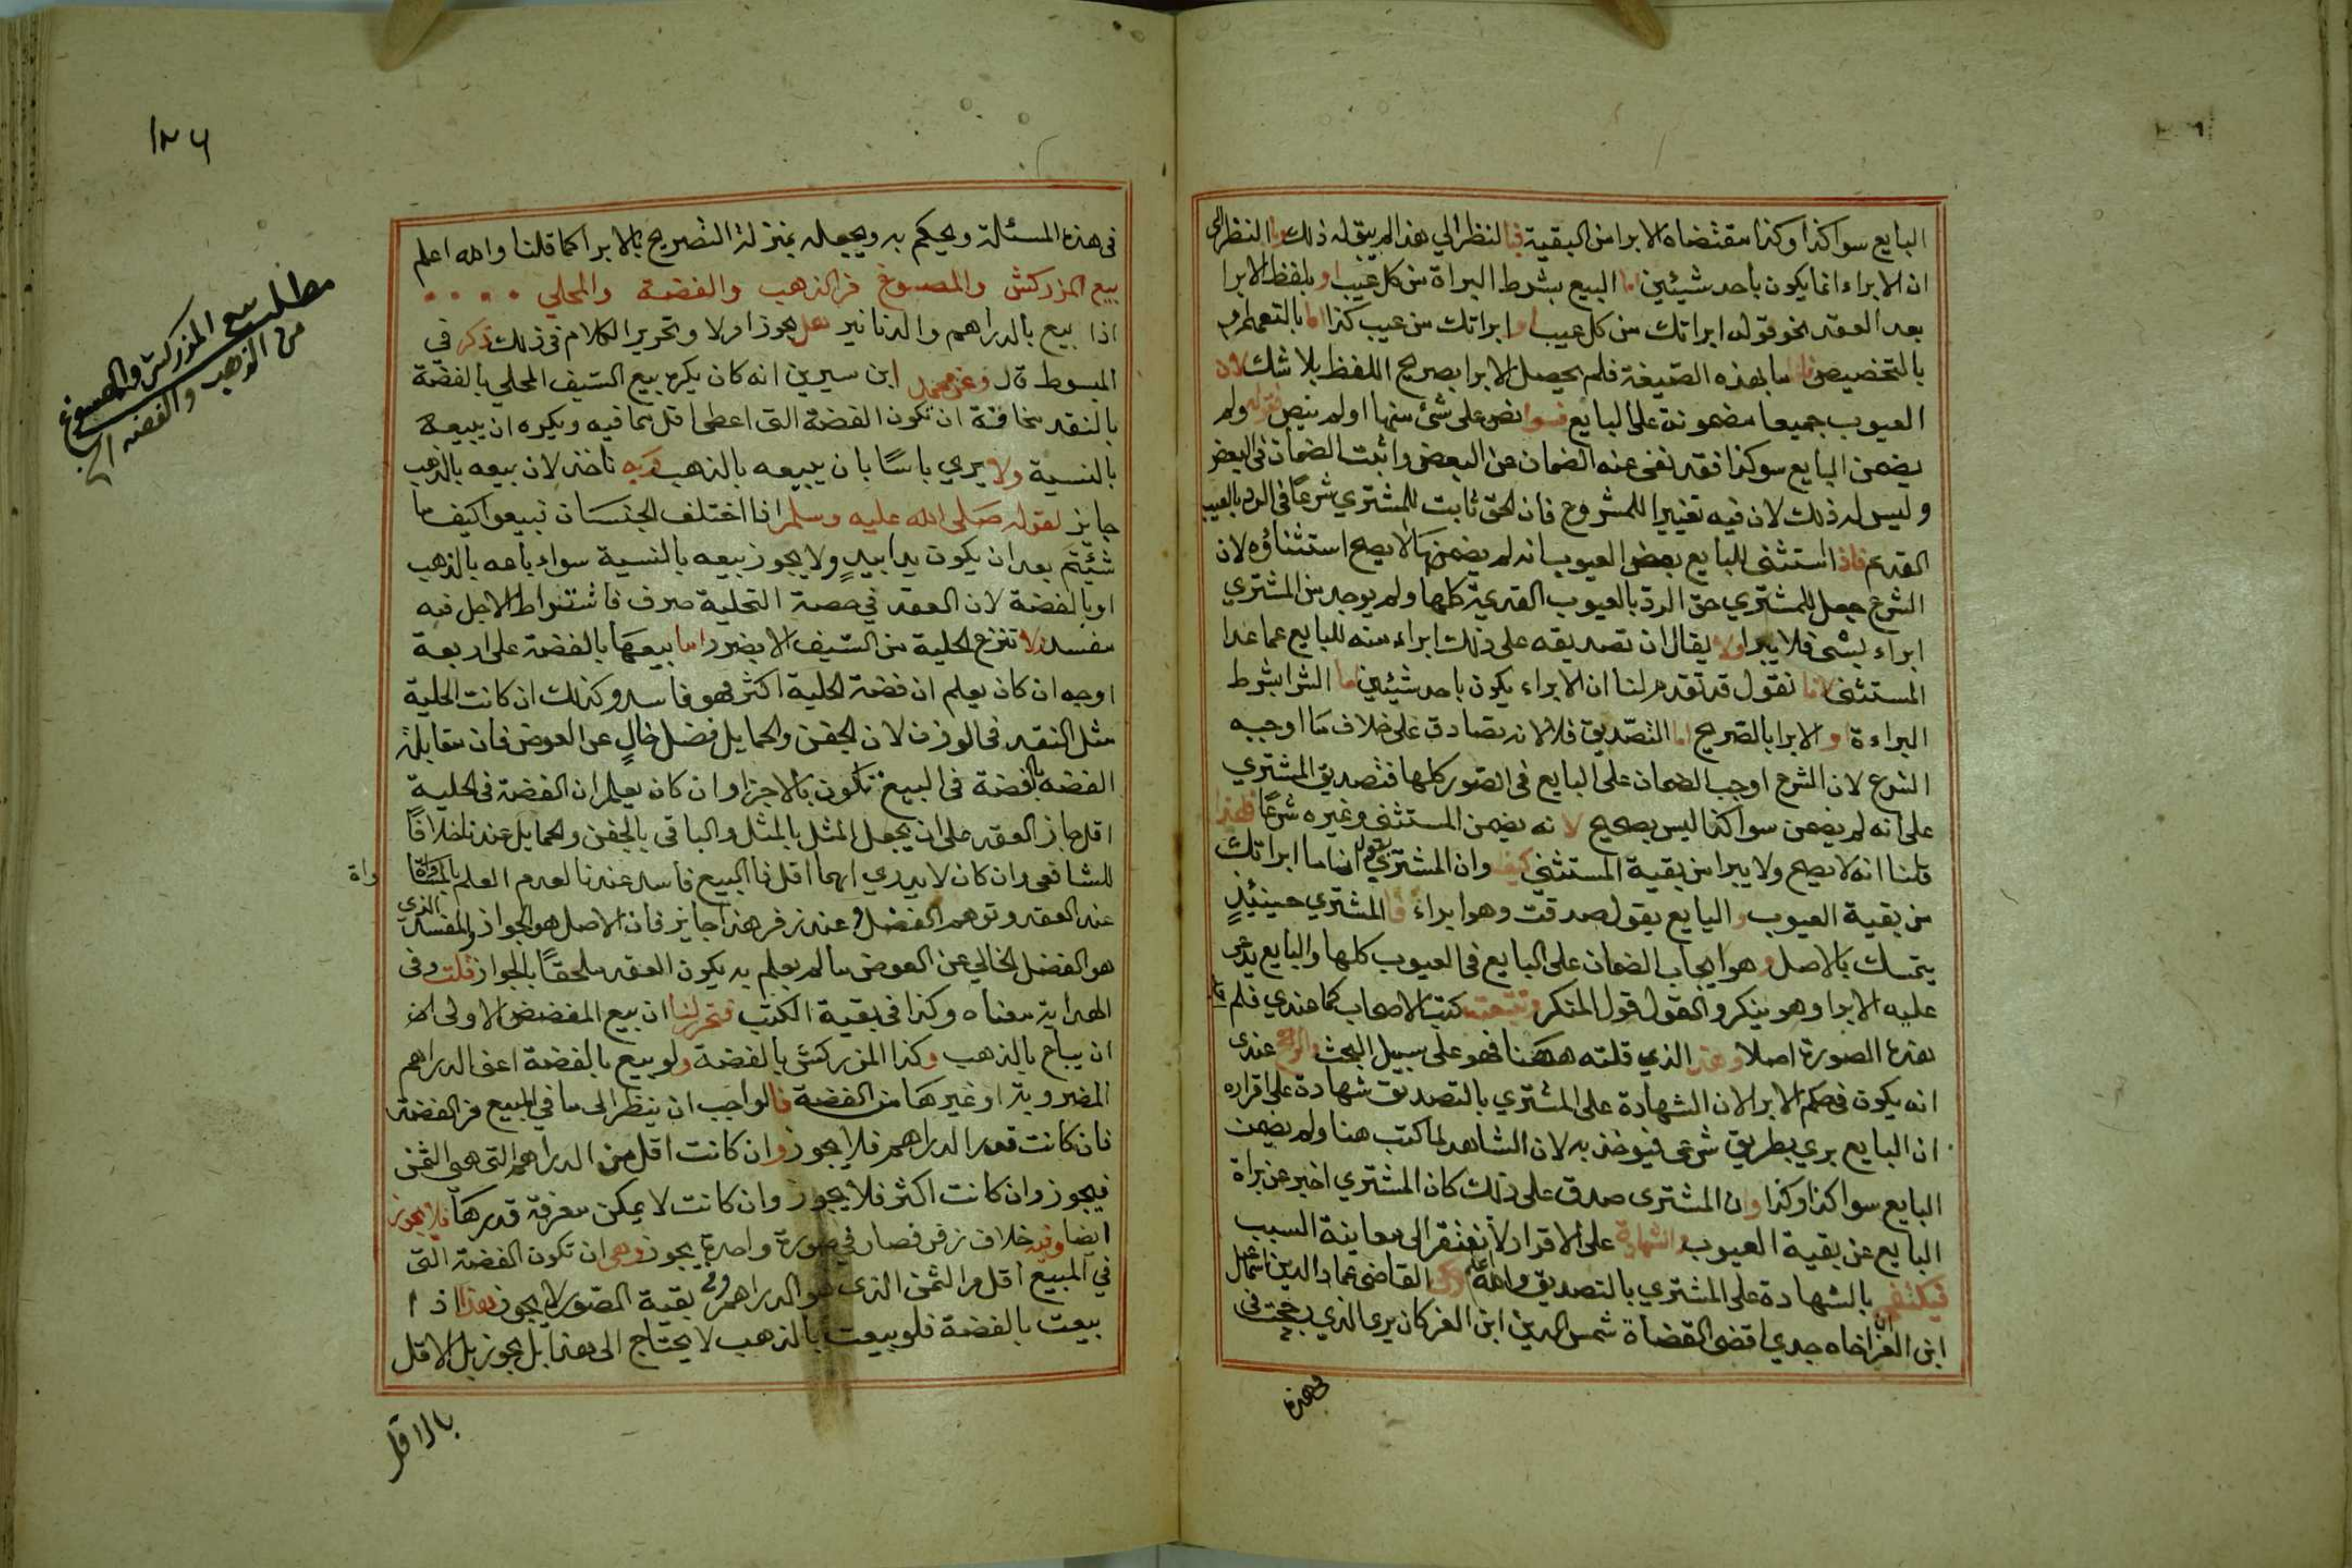 البايع سوا كذا وكذا مقتضاه الابرا من البقية فبالنظر الي هذا لم يبق له ذلك وبا النظر الى
ان الابراء انما يكون باحد شيئين اما البيع بشرط البراة من كل عيب او بلفظ الابرا
بعد العقد نحو قوله ابراتك من كل عيب او ابراتك من عيب كذا اما بالتعميم او
بالتخصيص بهذه الصيغة فلم يحصل الابرا بصريح اللفظ بلا شك لان
العيوب جميعا مضمونة على البايع فسوا نص على شئ منها او لم ينص فقوله ولم
يضمن البايع سو كذا فقد نفى عنه الضمان عن البعض واثبت الضمان في البعض
وليس له ذلك لان فيه تغييرا للمشروع فان الحق ثابت للمشتري شرعًا في الرد بالعيب
القديم فاذا استثنى للبايع بعض العيوب انه لم يضمنها لا يصح استثناؤه لان
الشرع جعل للمشتري حق الرد بالعيوب القديمة كلها ولم يوجد من المشتري
ابراء بشى فلا يبرا ولا يقال ان تصديقه على ذلك ابراء منه للبايع عما عدا
المستثنى لانا نقول قد تقدم لنا ان الابراء يكون باحد شيئين اما الشرا بشرط
البراءة او الابرا بالتصريح اما التصديق فلا لانه تصادق على خلاف ما اوجبه
الشرع لان الشرع اوجب الضمان على البايع في الصور كلها فتصديق المشتري
على انه لم يضمن سوا كذا ليس بصحيح لانه يضمن المستثنى وغيره شرعًا فلهذا
قلنا انه لا يصح ولا يبرا من بقية المستثنى كيف وان المشتري يقول انا ما ابراتك
من بقية العيوب والبايع يقول صدقت وهو ابراءٌ فالمشتري حينئيذٍ
يتمسك بالاصل وهو ايجاب الضمان على البايع في العيوب كلها والبايع يدعى
عليه الابرا وهو ينكر والقول قول المنكر وتتبعت كتب الاصحاب كما عندي فلم ار
هذه الصورة اصلا وهذا الذي قلته ههنا فهو على سبيل البحث والراجح عندى
انه يكون في حكم الابرا لان الشهادة على المشتري بالتصديق شهادة على اقراره
ان البايع بري بطريق شرعى فيوخذ به لان الشاهد لما كتب هنا ولم يضمن
البايع سوا كذا وكذا وان المشترى صدق على ذلك كان المشتري اخبر عن براة
البايع عن بقية العيوب والشهادة على الاقرار لا تفتقر الى معاينة السبب
فيكتفى بالشهادة على المشتري بالتصديق والله اعلم القاضى عماد الدين اسماعيل
ابن العز اخاه جدي اقضى القضاة شمس الدين ابن العز كان يرى الذي رجحت في
في هذه
١٢٦
في هذه المسئلة ويحكم به ويجعله بمنزلة التصريح بالابرا كما قلنا والله اعلم
بيع المزركش والمصوغ من الذهب والفضة والمحلي
اذا بيع بالدراهم والدنانير هل يجوز ام لا وتحرير الكلام في ذلك ذكر في
المبسوط قال وعن محمد ابن سيرين انه كان يكره بيع السيف المحلي بالفضة
بالنقد مخافة ان تكون الفضة التى اعطى اقل مما فيه ويكره ان يبيعه
بالنسية ولا يري باسًا بان يبيعه بالذهب وبه ناخذ لان بيعه بالذهب
جايز لقوله صلى الله عليه وسلم اذا اختلف الجنسان فبيعوا كيف ما
شئتم بعد ان يكون يدا بيدٍ ولا يجوز بيعه بالنسية سواء باعه بالذهب
او بالفضة لان العقد في حصة التحلية صرف فاشتراط الاجل فيه
مفسد ولا تنزع الحلية من السيف الا بضرر اما بيعها بالفضة على اربعة
اوجه ان كان يعلم ان فضة الحلية اكثر فهو فاسد وكذلك ان كانت الحلية
مثل النقد في الوزن لان الجفن والحمايل فضل خالٍ عن العوض فان مقابلة
الفضة بالفضة في البيع تكون بالاجزا وان كان يعلم ان الفضة في الحلية
اقل جاز العقد على ان يجعل المثل بالمثل والباقى بالجفن والحمايل عندنا خلافًا
للشافعى وان كان لا يدري ايهما اقل فالبيع فاسد عندنا لعدم العلم بالمساواة
عند العقد وتوهم الفضل وعند زفر هذا جايز فان الاصل هو الجواز والمفسد الذي
هو الفضل الخالي عن العوض ما لم يعلم به يكون العقد ملحقًا بالجواز قلت وفى
الهداية معناه وكذا في بقية الكتب فتحرر لنا ان بيع المفضض الاولى انه
ان يباع بالذهب وكذا المزركش بالفضة ولو بيع بالفضة اعنى الدراهم
المضروبة او غيرها من الفضة فالواجب ان ينظر الى ما في المبيع من الفضة
فان كانت قدر الدراهم فلا يجوز وان كانت اقل من الدراهم التى هى الثمن
فيجوز وان كانت اكثر فلا يجوز وان كانت لا يمكن معرفة قدرها فلا يجوز
ايضا وفيه خلاف زفر فصار في صورة واحدة يجوز وهى ان تكون الفضة التى
في المبيع اقل من الثمن الذى هو الدراهم وفى بقية الصور لا يجوز هذا اذا
بيعت بالفضة فلو بيعت بالذهب لا يحتاج الى هذا بل يجوز بل الاقل
بالاقل
مطلب بيع المزركش والمصوغ
من الذهب والفضه الخ